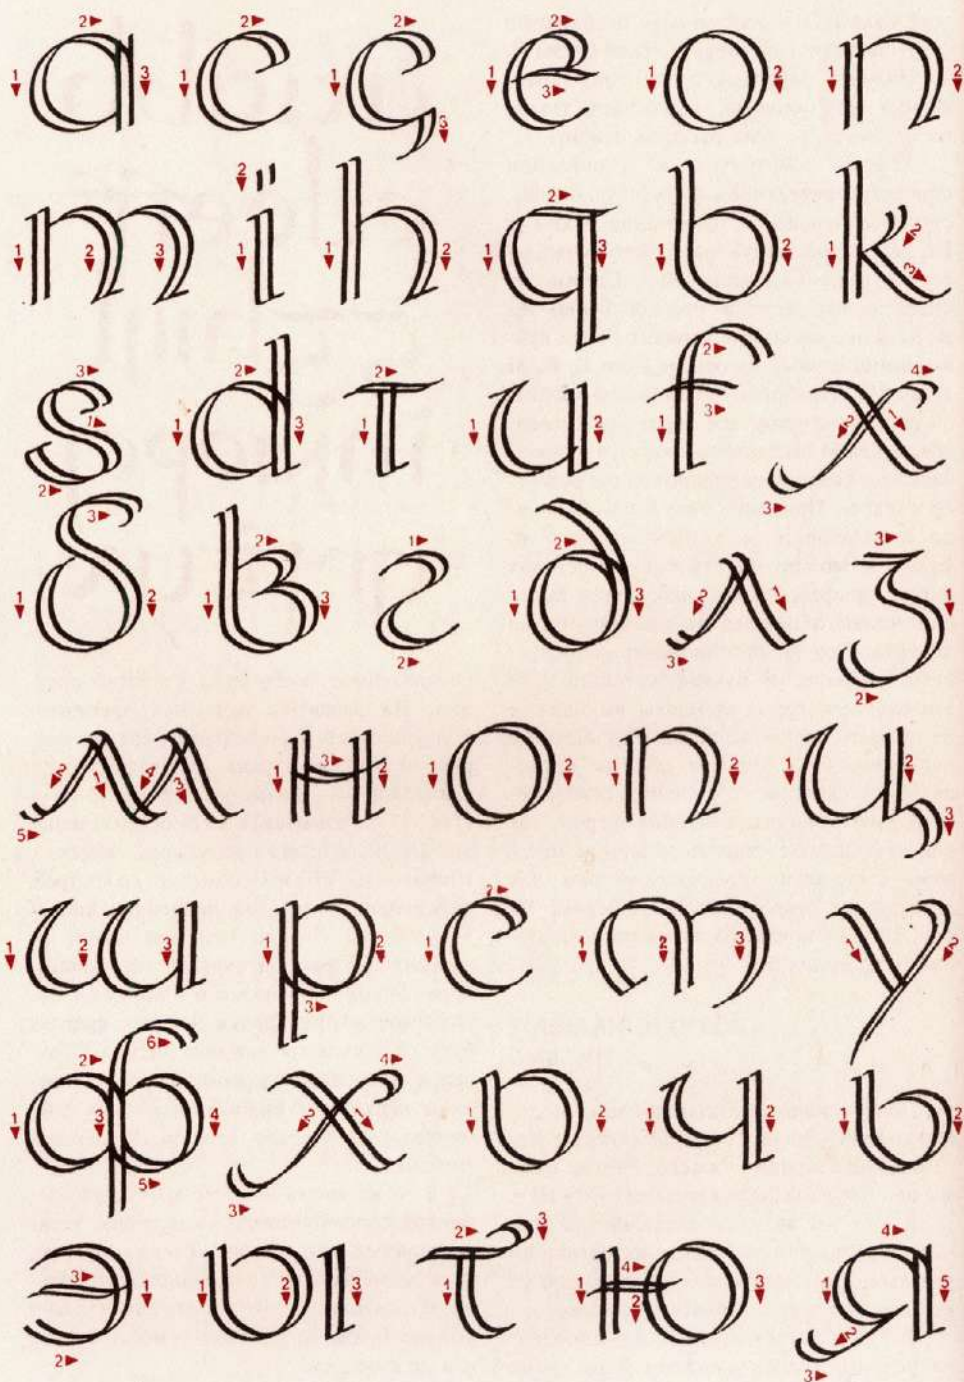 a c ç e o n
m ï h q b k
s d т u f x
б в г д л з
м н о п ц
ш р с т у
ф х ч ь
э ы ю я